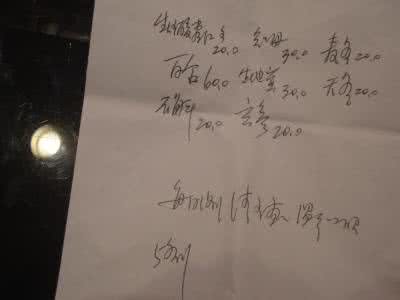 生酸枣仁 20.0 知母 30.0 麦冬 20.0
百合 60.0 生地黄 30.0 天冬 20.0
石斛 20.0 玄参 20.0
每日1剂
5剂